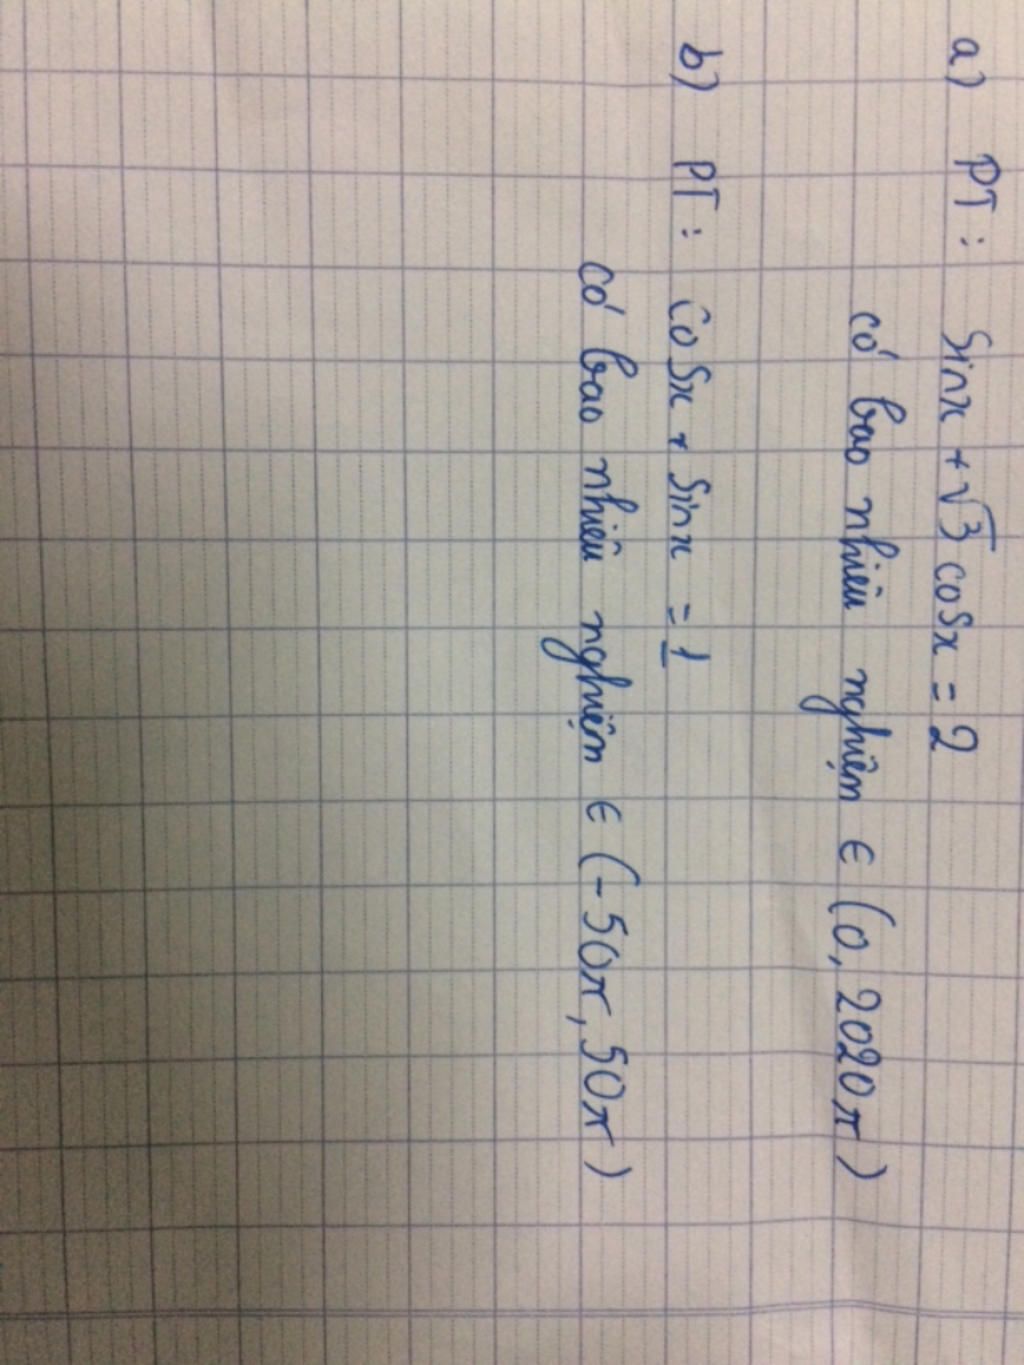 a) PT: Sinx + √3 cosx = 2
có bao nhiêu nghiệm ∈ (0, 2020π)
b) PT: Cosx + Sinx = 1
có bao nhiêu nghiệm ∈ (-50π, 50π)